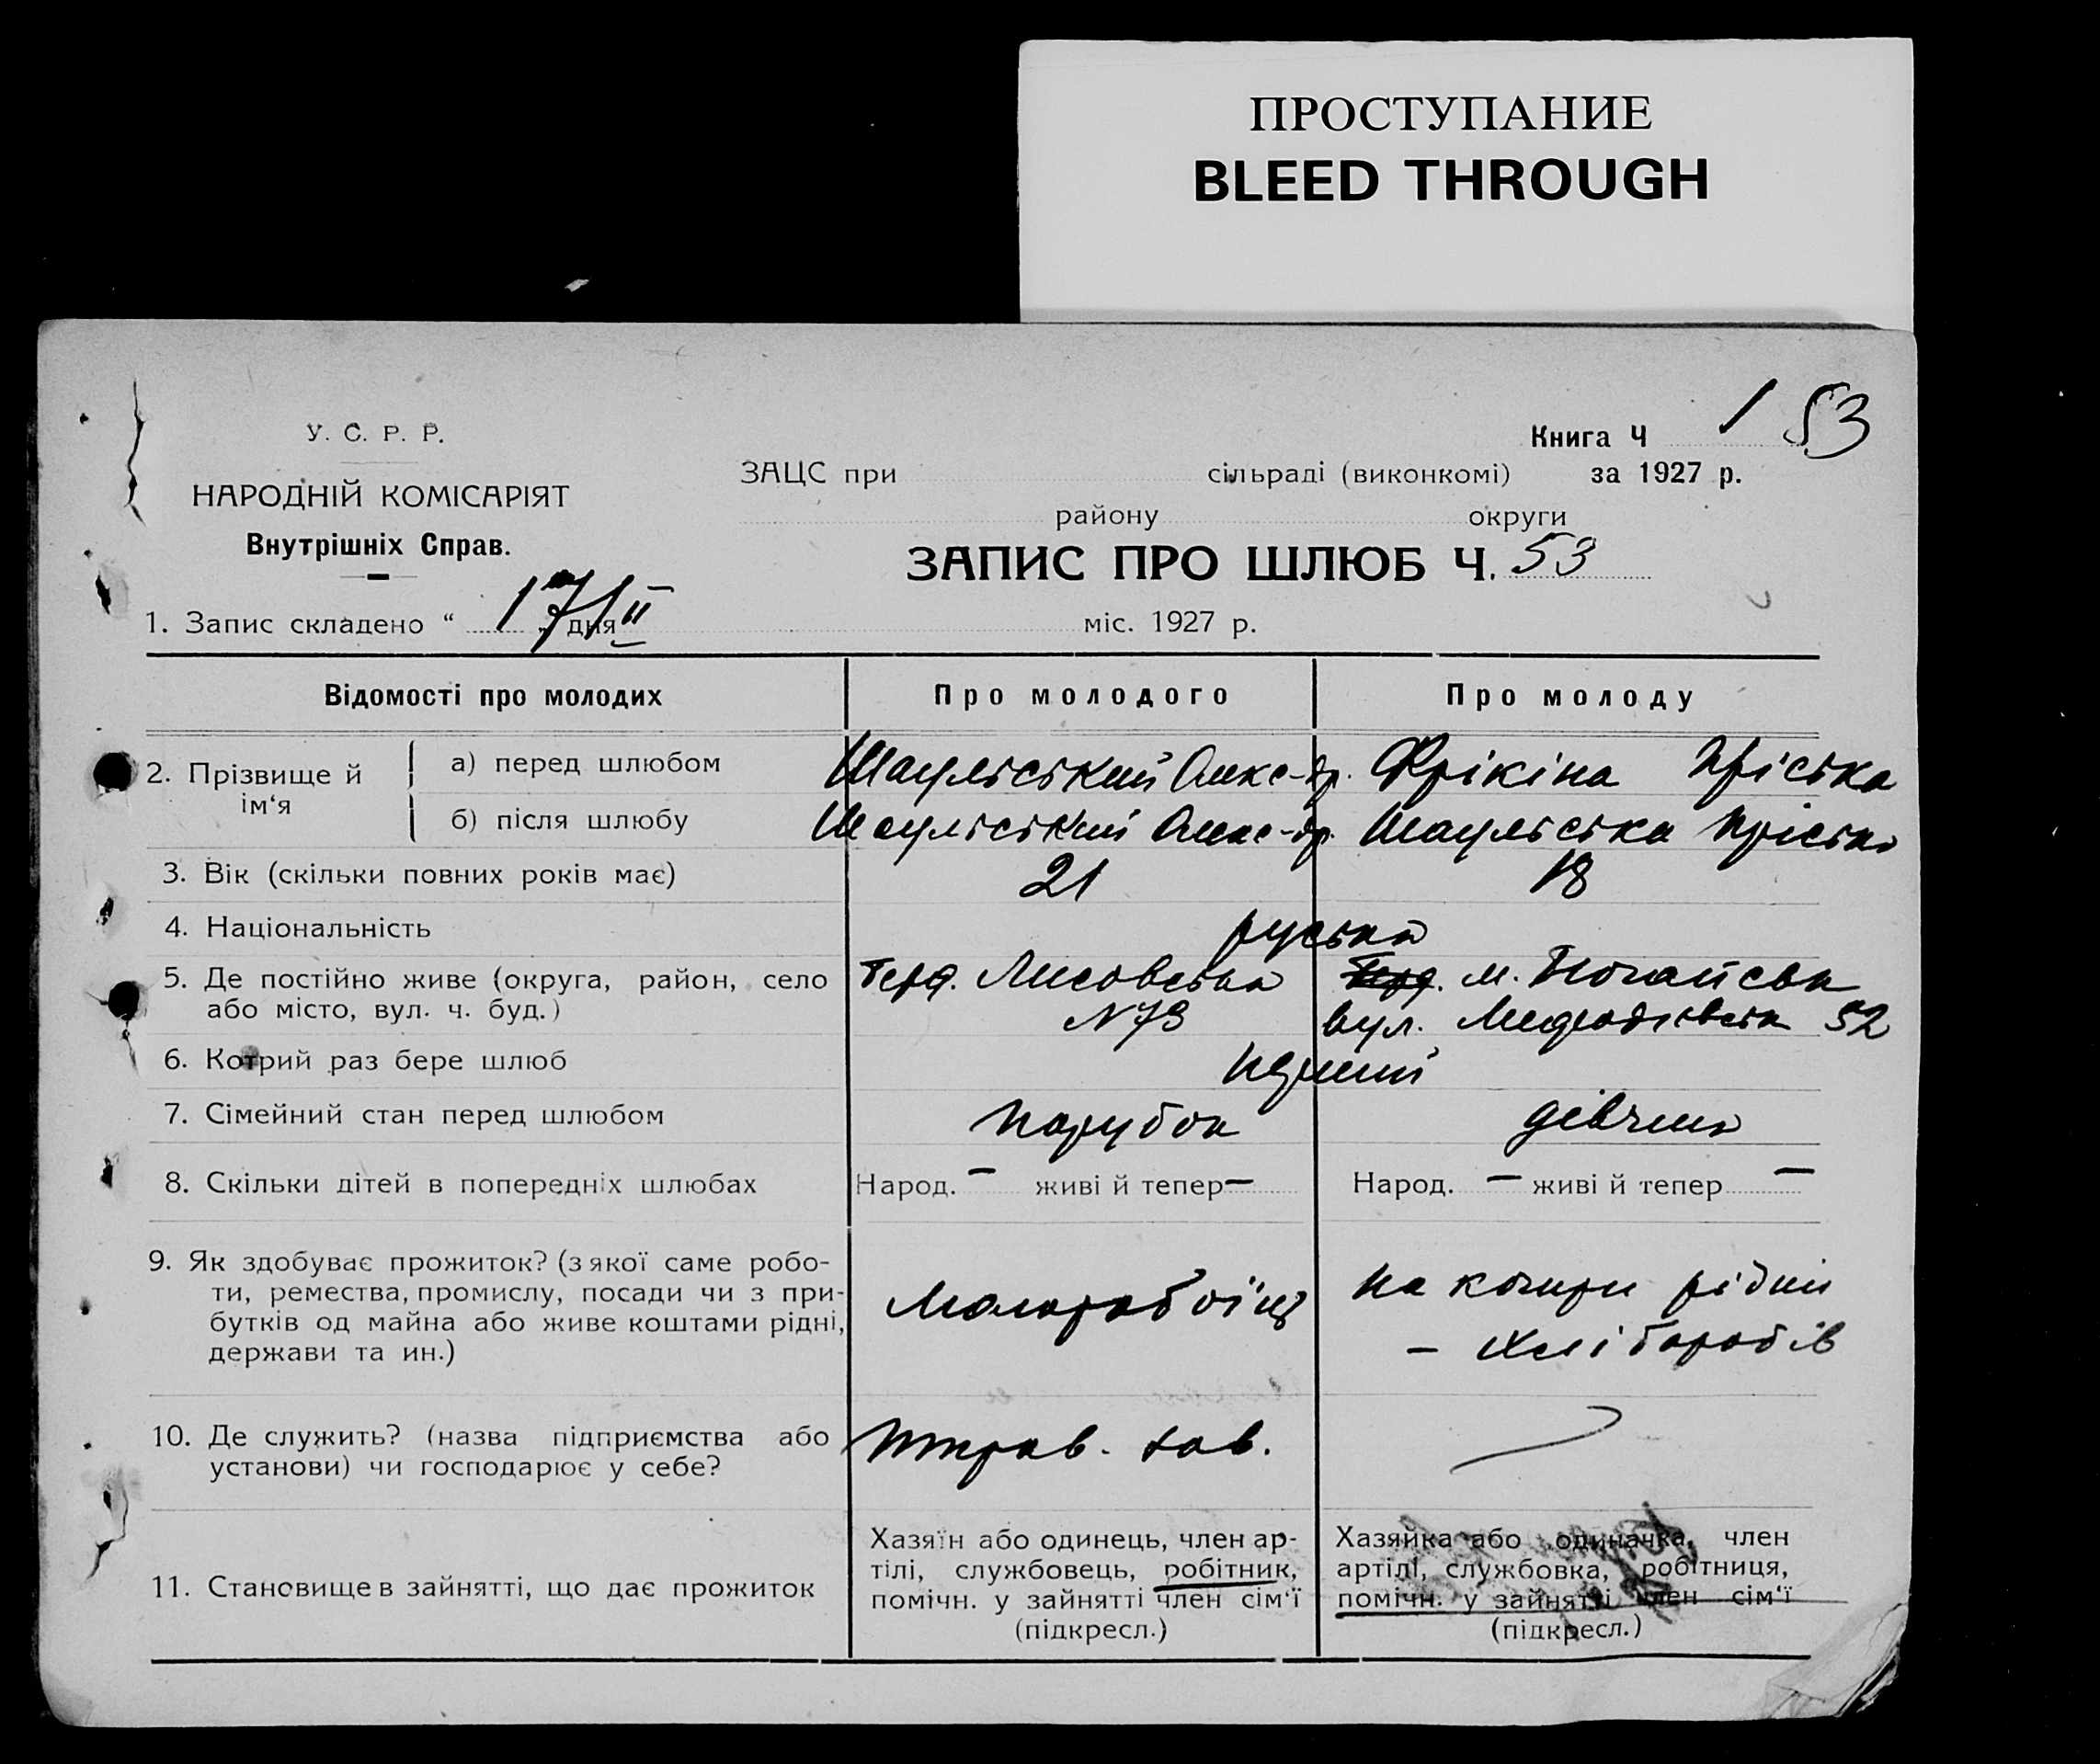 ПРОСТУПАНИЕ
BLEED THROUGH
У. С. Р. Р.
НАРОДНІЙ КОМІСАРІЯТ
Внутрішніх Справ.
Книга Ч 1 53
ЗАЦС при сільраді (виконкомі) за 1927 р.
району округи
ЗАПИС ПРО ШЛЮБ Ч. 53
1. Запис складено “ 17/II „ дня міс. 1927 р.
Відомості про молодих Про молодого Про молоду
2. Прізвище й ім‘я а) перед шлюбом Шаульський Олекс-др. Фрікіна Пріська
б) після шлюбу Шаульський Олекс-др. Шаульська Пріська
3. Вік (скільки повних років має) 21 18
4. Національність руська
5. Де постійно живе (округа, район, село Берд. Лисовська м. Ногайськ
або місто, вул. ч. буд.) N 73 вул. 52
6. Котрий раз бере шлюб перший
7. Сімейний стан перед шлюбом парубок дівчина
8. Скільки дітей в попередніх шлюбах Народ. — живі й тепер — Народ. — живі й тепер —
9. Як здобуває прожиток? (з якої саме робо-
ти, ремества, промислу, посади чи з при-
бутків од майна або живе коштами рідні,
держави та ин.)
на кошти рідни
— хліборобів
10. Де служить? (назва підприємства або
установи) чи господарює у себе?
11. Становище в зайнятті, що дає прожиток
Хазяїн або одинець, член ар-
тілі, службовець, робітник,
помічн. у зайнятті член сім‘ї
(підкресл.)
Хазяйка або одиначка, член
артілі, службовка, робітниця,
помічн. у зайнятті член сім‘ї
(підкресл.)